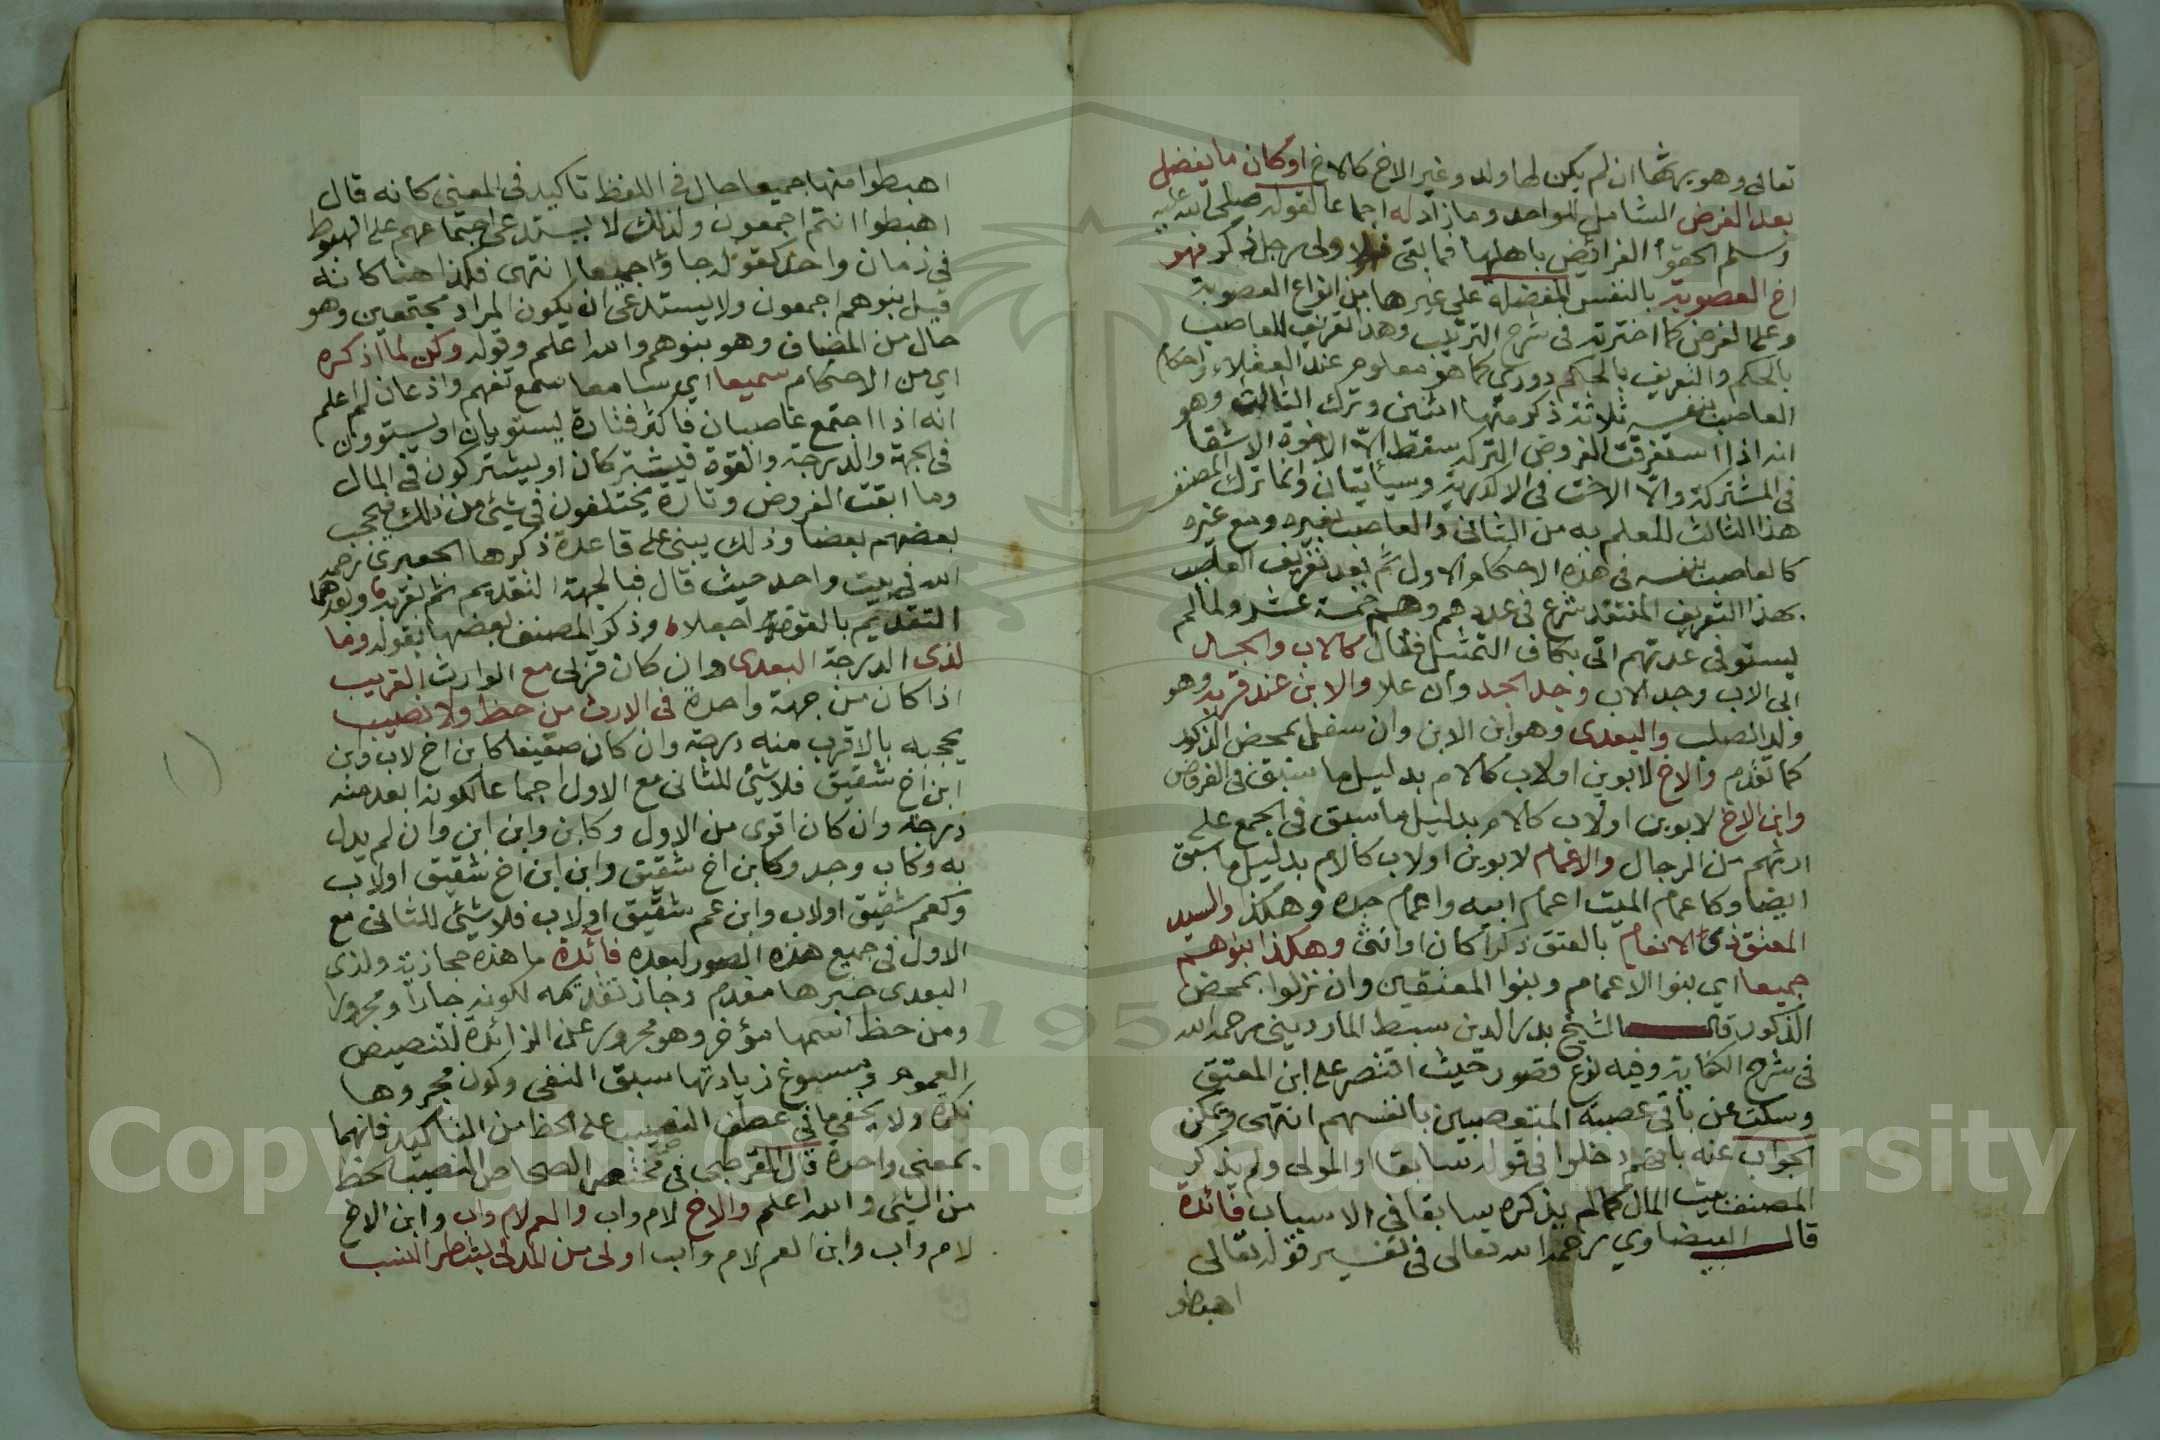 تعالى وهو يرثها ان لم يكن لها ولد وغير الاخ كالاخ اوكان ما يفضل
بعد الفرض الشامل للواحد وما زاد له اجماعا لقوله صلى الله عليه
وسلم الحقوا الفرائض باهلها فما بقى فلاولى رجل ذكر فهو
اخ العصوبة بالنفس المفضلة على غيرها من انواع العصوبة
وعلى الفرض كما اخترته في شرح الترتيب وهذا تعريف للعاصب
بالحكم والتعريف بالحكم دوري كما هو معلوم عند العقلاء واحكام
العاصب بنفسه ثلاثة ذكر منها اثنين وترك الثالث وهو
انه اذا استغرقت الفروض التركة سقط الا الاخوة الاشقا
في المشتركة والا الاخت في الاكدرية وسيأتيان وانما ترك المصنف
هذا الثالث للعلم به من الثاني والعاصب بغيره ومع غيره
كالعاصب بنفسه في هذه الاحكام الاول ثم بعد تعريف العاصب
بهذا التعريف المنتقد شرع في عددهم وهم خمسة عشر ولما لم
يستوفي عدتهم اتى بكاف التمثيل فقال كالاب والجد
ابى الاب وجد الاب وجد الجد وان علا والابن عند قربه وهو
ولد الصلب والبعدى وهو ابن الابن وان سفل بمحض الذكور
كما تقدم والاخ لابوين اولاب كالام بدليل ما سبق في الفروض
وابن الاخ لابوين اولاب كالام بدليل ما سبق في الجمع على
ارثهم من الرجال والاعمام لابوين اولاب كالام بدليل ما سبق
ايضا وكاعمام الميت اعمام ابيه واعمام جده وهكذا والسيد
المعتق ذى الانعام بالعتق ذكرا كان اوانثى وهكذا بنوهم
جميعا اي بنوا الاعمام وبنوا المعتقين وان نزلوا بمحض
الذكور قال الشيخ بدر الدين سبط المارديني رحمه الله
في شرح الكفاية وفيه نوع قصور حيث اقتصر على ابن المعتق
وسكت عن باقي عصبته المتعصبين بانفسهم انتهى ويمكن
الجواب عنه بانهم دخلوا في قوله سابقا او المولى ولم يذكر
المصنف بيت المال كما لم يذكره سابقا في الاسباب فائدة
قال البيضاوي رحمه الله تعالى في تفسير قوله تعالى
اهبطو
اهبطوا منها جميعا حال في اللفظ تاكيد في المعنى كانه قال
اهبطوا انتم اجمعون ولذلك لا يستدعى اجتماعهم على الهبوط
في زمان واحد كقوله جاؤا جميعا انتهى فكذا هنا كانه
قيل بنوهم اجمعون ولا يستدعى ان يكون المراد مجتمعين وهو
حال من المضاف وهو بنوهم والله اعلم وقوله وكن لما اذكره
اي من الاحكام سميعا اي سامعا سمع تفهم واذعان ثم اعلم
انه اذا اجتمع عاصبان فاكثر فتارة يستويان او يستوون
في الجهة والدرجة والقوة فيشتركان او يشتركون في المال
وما ابقت الفروض وتارة يختلفون في شيء من ذلك فيحجب
بعضهم بعضا وذلك يبنى على قاعدة ذكرها الجعبري رحمه
الله في بيت واحد حيث قال فبالجهة التقديم ثم بقربه وبعدهما
التقديم بالقوة اجعلا وذكر المصنف بعضها بقوله وما
لذى الدرجة البعدى وان كان قربى مع الوارث القريب
اذا كان من جهة واحدة في الارث من حظ ولا نصيب
يحجبه بالاقرب منه درجة وان كان ضعيفا كابن اخ لاب وابن
ابن اخ شقيق فلا شيء للثاني مع الاول اجماعا لكونه ابعد منه
درجة وان كان اقوى من الاول وكابن وابن ابن وان لم يدل
به وكاب وجد وكابن اخ شقيق وابن ابن اخ شقيق اولاب
وكعم شقيق اولاب وابن عم شقيق اولاب فلا شيء للثاني مع
الاول في جميع هذه الصور لبعده فائدة ما هذه حجازية ولذى
البعدى خبرها مقدم وجاز تقديمه لكونه جارا ومجرورا
ومن حظ اسمها مؤخر وهو مجرور بمن الزائدة لتنصيص
العموم ومسوغ زيادتها سبق النفى وكون مجروها
نكرة ولا يخفى ما في عطف النصيب على الحظ من التاكيد فانهما
بمعنى واحدة قال القرطبى في مختصر الصحاح النصيب الحظ
من الشيء والله اعلم والاخ لام واب والعم لام واب وابن الاخ
لام واب وابن العم لام واب اولى من المدلي بشطر النسب
Copyright © King Saud University
195